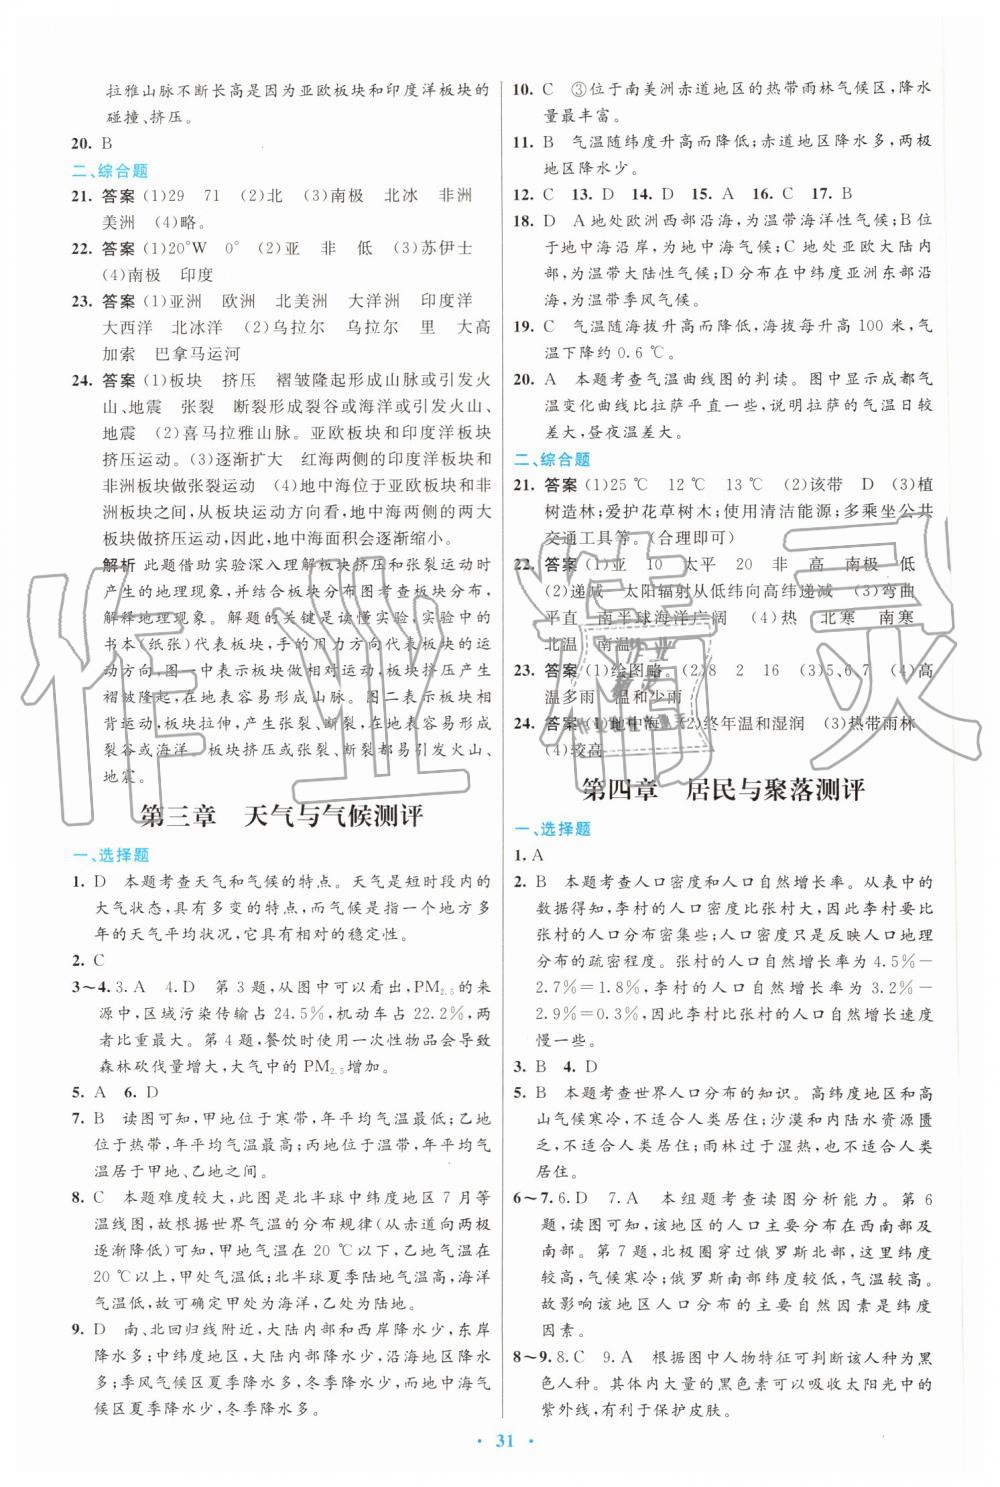 拉雅山脉不断长高是因为亚欧板块和印度洋板块的
碰撞、挤压。
20. B
二、综合题
21. 答案 (1)29 71 (2)北 (3)南极 北冰 非洲
美洲 (4)略。
22. 答案 (1)20°W 0° (2)亚 非 低 (3)苏伊士
(4)南极 印度
23. 答案 (1)亚洲 欧洲 北美洲 大洋洲 印度洋
大西洋 北冰洋 (2)乌拉尔 乌拉尔 里 大高
加索 巴拿马运河
24. 答案 (1)板块 挤压 褶皱隆起形成山脉或引发火
山、地震 张裂 断裂形成裂谷或海洋或引发火山、
地震 (2)喜马拉雅山脉。亚欧板块和印度洋板块
挤压运动。(3)逐渐扩大 红海两侧的印度洋板块和
非洲板块做张裂运动 (4)地中海位于亚欧板块和非
洲板块之间,从板块运动方向看,地中海两侧的两大
板块做挤压运动,因此,地中海面积会逐渐缩小。
解析 此题借助实验深入理解板块挤压和张裂运动时
产生的地理现象,并结合板块分布图考查板块分布,
解释地理现象。解题的关键是读懂实验,实验中的
书本(纸张)代表板块,手的用力方向代表板块的运
动方向,图一中表示板块做相对运动,板块挤压产生
褶皱隆起,在地表容易形成山脉。图二表示板块相
背运动,产生张裂、断裂,在地表容易形成
裂谷或海洋。板块挤压、张裂、断裂都易引发火山、
地震。
第三章 天气与气候测评
一、选择题
1. D 本题考查天气和气候的特点。天气是短时段内的
大气状态,具有多变的特点,而气候是指一个地方多
年的天气平均状况,它具有相对的稳定性。
2. C
3～4. 3. A 4. D 第 3 题,从图中可以看出,PM2.5的来
源中,区域污染传输占 24.5%,机动车占 22.2%,两
者比重最大。第 4 题,餐饮时使用一次性物品会导致
森林砍伐量增大,大气中的 PM2.5增加。
5. A 6. D
7. B 读图可知,甲地位于寒带,年平均气温最低;乙地
位于热带,年平均气温最高;丙地位于温带,年平均气
温居于甲地、乙地之间。
8. C 本题难度较大,此图是北半球中纬度地区 7 月等
温线图,故根据世界气温的分布规律(从赤道向两极
逐渐降低)可知,甲地气温在 20 ℃以下,乙地气温在
20 ℃以上,甲处气温低;北半球夏季陆地气温高,海洋
气温低,故可确定甲处为海洋,乙处为陆地。
9. D 南、北回归线附近,大陆内部和西岸降水少,东岸
降水多;中纬度地区,大陆内部降水少,沿海地区降水
多;季风气候区夏季降水多,冬季降水少,而地中海气
候区夏季降水少,冬季降水多。
10. C ③位于南美洲赤道地区的热带雨林气候区,降水
量最丰富。
11. B 气温随纬度升高而降低;赤道地区降水多,两极
地区降水少。
12. C 13. D 14. D 15. A 16. C 17. B
18. D A 地处欧洲西部沿海,为温带海洋性气候;B 位
于地中海沿岸,为地中海气候;C 地处亚欧大陆内
部,为温带大陆性气候;D 分布在中纬度亚洲东部沿
海,为温带季风气候。
19. C 气温随海拔升高而降低,海拔每升高 100 米,气
温下降约 0.6 ℃。
20. A 本题考查气温曲线图的判读。图中显示成都气
温变化曲线比拉萨平直一些,说明拉萨的气温日较
差大,昼夜温差大。
二、综合题
21. 答案 (1)25 ℃ 12 ℃ 13 ℃ (2)该带 D (3)植
树造林;爱护花草树木;使用清洁能源;多乘坐公共
交通工具等。(合理即可)
22. 答案 (1)亚 10 太平 20 高 南极 低
(2)递减 太阳辐射从低纬向高纬递减 (3)弯曲
平直 南半球海洋广阔 (4)热 北寒 南寒
北温 南温
23. 答案 (1)绘图略。 (2)8 2 16 (3)5、6、7 (4)高
温多雨 温和少雨
24. 答案 (1)地中海 (2)终年温和湿润 (3)热带雨林
(4)较高
第四章 居民与聚落测评
一、选择题
1. A
2. B 本题考查人口密度和人口自然增长率。从表中的
数据得知,李村的人口密度比张村大,因此李村要比
张村的人口分布密集些;人口密度只是反映人口地理
分布的疏密程度。张村的人口自然增长率为 4.5%－
2.7%＝1.8%,李村的人口自然增长率为 3.2%－
2.9%＝0.3%,因此李村比张村的人口自然增长速度
慢一些。
3. B 4. D
5. B 本题考查世界人口分布的知识。高纬度地区和高
山气候寒冷,不适合人类居住;沙漠和内陆水资源匮
乏,不适合人类居住;雨林过于湿热,也不适合人类
居住。
6～7. 6. D 7. A 本组题考查读图分析能力。第 6
题,读图可知,该地区的人口主要分布在西南部及
南部。第 7 题,北极圈穿过俄罗斯北部,这里纬度
较高,气候寒冷;俄罗斯南部纬度较低,气温较高。
故影响该地区人口分布的主要自然因素是纬度
因素。
8～9. 8. C 9. A 根据图中人物特征可判断该人种为黑
色人种。其体内大量的黑色素可以吸收太阳光中的
紫外线,有利于保护皮肤。
· 31 ·
作业精灵